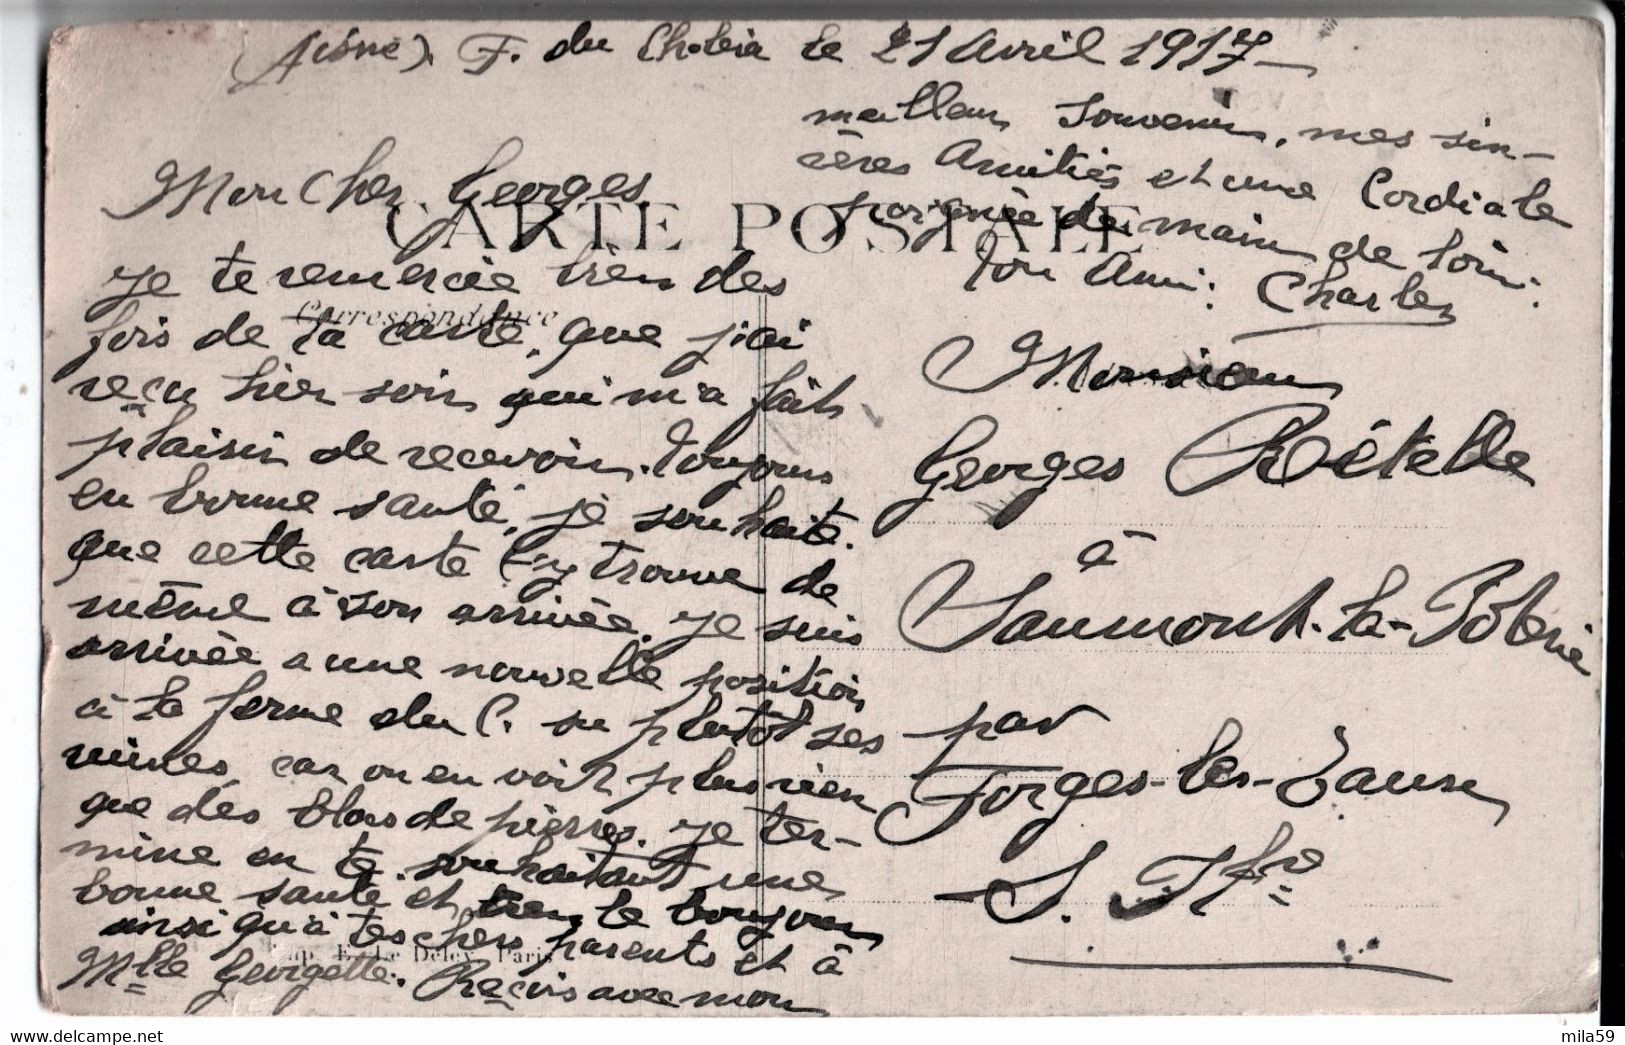 (Aisne). F. du Choléra le 21 Avril 1917
Mon Cher Georges,
CARTE POSTALE
Correspondance
Je te remercie bien des
fois de ta carte, que j'ai
reçu hier soir qui m'a fait
plaisir de recevoir. Toujours
en bonne santé, je souhaite
que cette carte t'y trouve de
même à son arrivée. Je suis
arrivée a une nouvelle position
à la ferme du C. ou plutôt ses
ruines, car on en voit plus rien
que des blocs de pierres. Je ter-
mine en te souhaitant une
bonne santé et bien le bonjour
ainsi qu'à tes chers parents et à
Mlle Georgette. Reçois avec mon
Imp. E. Le Deley, Paris
meilleur souvenir, mes sin-
cères Amitiés et une Cordiale
poignée de main de loin.
Ton Ami: Charles
Monsieur
Georges Rételle
à
Saumont-la-Poterie
par
Forges-les-Eaux
S. Ifre
mila59